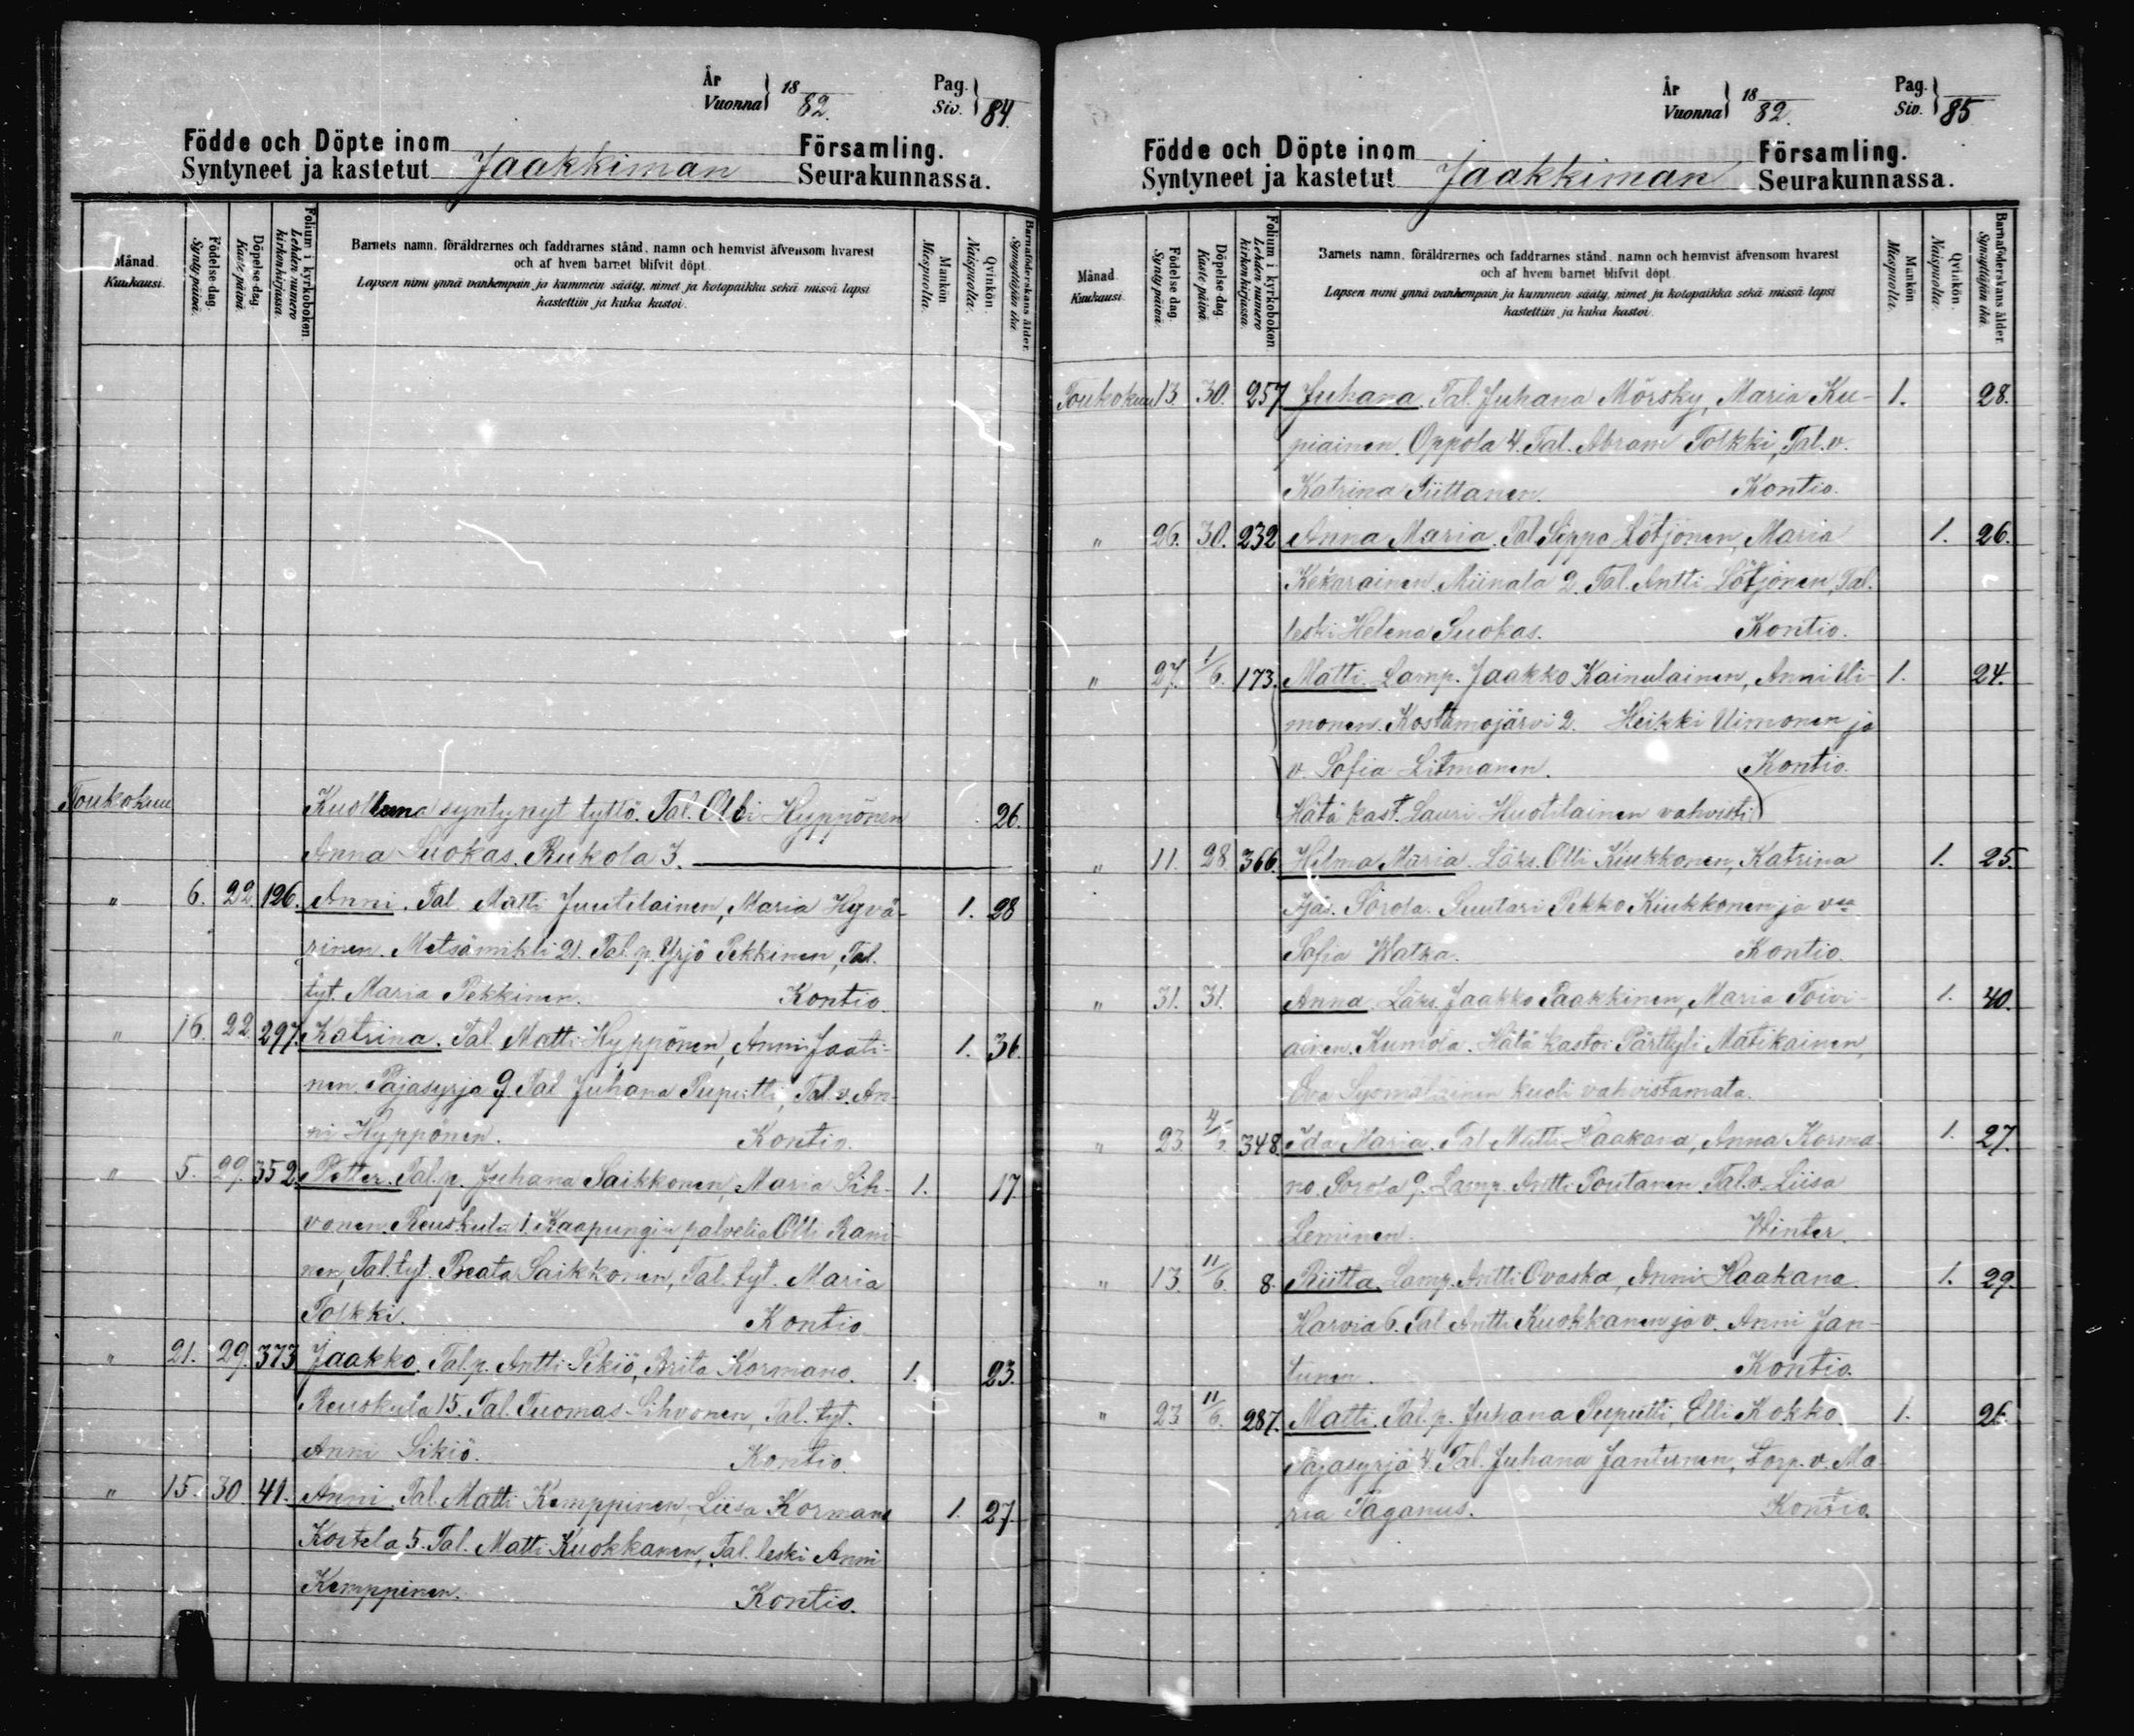 År Vuonna 1882. Pag. Siv. 84.
Födde och Döpte inom Församling.
Syntyneet ja kastetut Jaakkiman Seurakunnassa.
Månad. Kuukausi.
Födelse dag. Synty päivä.
Döpelse dag. Kaste päivä.
Folium i kyrkoboken. Lehden numero kirkonkirjassa.
Barnets namn, föräldrarnes och faddrarnes stånd, namn och hemvist äfvensom hvarest
och af hvem barnet blifvit döpt.
Lapsen nimi ynnä vanhempain ja kummein sääty, nimet ja kotopaikka sekä missä lapsi
kastettiin ja kuka kastoi.
Mankön. Miespuolta.
Qvinkön. Naispuolta.
Barnaföderskans ålder. Synnyttäjän ikä.
Toukokuu Kuolleena syntynyt tyttö. Tal. Olli Hyppönen 26.
Anna Suokas. Rukola 3.
" 6. 22. 126. Anni. Tal. Matti Juutilainen, Maria Hyvä- 1. 28
rinen. Metsämikli 21. Tal. p. Yrjö Pekkinen, Tal.
tyt. Maria Pekkinen. Kontio.
" 16. 22. 297. Katrina. Tal. Matti Hyppönen, Anni Jaati- 1. 36.
nen. Pajasyrjä 9. Tal. Juhana Peiputti, Tal. v. An-
ni Hyppönen. Kontio.
" 5. 29. 352. Petter. Tal. p. Juhana Saikkonen, Maria Sih- 1. 17.
vonen. Reuskula 1. Kaapungin palvelia Olli Rami-
nen, Tal. tyt. Beata Saikkonen, Tal. tyt. Maria
Tolkki. Kontio
" 21. 29. 373 Jaakko. Tal. p. Antti Sikiö, Brita Kormano. 1. 23.
Reuskula 15. Tal. Tuomas Sihvonen, Tal. tyt.
Anni Sikiö. Kontio.
" 15. 30. 41. Anni. Tal. Matti Kemppinen, Liisa Kormano 1. 27.
Kortela 5. Tal. Matti Kuokkanen, Tal. leski Anni
Kemppinen. Kontio.
År Vuonna 1882. Pag. Siv. 85
Födde och Döpte inom Församling.
Syntyneet ja kastetut Jaakkiman Seurakunnassa.
Månad. Kuukausi.
Födelse dag. Synty päivä.
Döpelse dag. Kaste päivä.
Folium i kyrkoboken. Lehden numero kirkonkirjassa.
Barnets namn, föräldrarnes och faddrarnes stånd, namn och hemvist äfvensom hvarest
och af hvem barnet blifvit döpt.
Lapsen nimi ynnä vanhempain ja kummein sääty, nimet ja kotopaikka sekä missä lapsi
kastettiin ja kuka kastoi.
Mankön. Miespuolta.
Qvinkön. Naispuolta.
Barnaföderskans ålder. Synnyttäjän ikä.
Toukokuu 13. 30. 257 Juhana. Tal. Juhana Mörsky, Maria Ku- 1. 28.
piainen. Oppola 4. Tal. Abram Tolkki, Tal. v.
Katrina Tiittanen. Kontio.
" 26. 30. 232 Anna Maria. Tal. Sippo Lötjönen, Maria 1. 26.
Kekarainen. Miinala 2. Tal. Antti Lötjönen, Tal.
leski Helena Suokas. Kontio.
" 27. 1/6. 173. Matti. Lamp. Jaakko Kainulainen, Anni Ui- 1. 24.
monen. Kostamojärvi 2. Heikki Uimonen ja
v. Sofia Litmanen. Kontio.
Hätä kast. Lauri Huotilainen vahvisti
" 11. 28. 366. Hilma Maria. Läks. Olli Kiukkonen, Katrina 1. 25.
Ijäs. Sorola. Suutari Pekko Kiukkonen ja v:o
Sofia Watka. Kontio.
" 31. 31. Anna. Läks. Jaakko Paakkinen, Maria Toivi- 1. 40.
ainen. Kumola. Hätä kastoi Pärttyli Matikainen,
Eva Suomalainen kuoli vahvistamata.
" 23. 4/6. 348. Ida Maria. Tal. Matti Haakana, Anna Korma- 1. 27.
no. Sorola 9. Lamp. Antti Poutanen, Tal. v. Liisa
Leminen. Winter.
" 13. 11/6. 8. Riitta. Lamp. Antti Ovaska, Anni Haakana. 1. 29.
Harvia 6. Tal. Antti Kuokkanen ja v. Anni Jan-
tunen. Kontio.
" 23 11/6. 287. Matti. Tal. p. Juhana Peiputti, Elli Kokko. 1. 26.
Pajasyrjä 4. Tal. Juhana Jantunen, Lorp. v. Ma-
ria Paganus. Kontio.